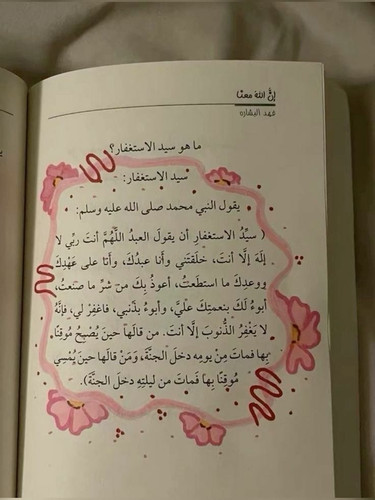 إنَّ اللهَ معنا
فهد البشاره
ما هو سيد الاستغفار؟
سيد الاستغفار:
يقول النبي محمد صلى الله عليه وسلم:
( سيِّدُ الاستغفارِ أن يقولَ العبدُ اللَّهُمَّ أنتَ ربِّي لا
إلَهَ إلَّا أنتَ، خلَقتَني وأنا عبدُكَ، وأنا على عَهْدِكَ
ووعدِكَ ما استطَعتُ، أعوذُ بِكَ من شرِّ ما صنَعتُ،
أبوءُ لَكَ بنعمتِكَ عليَّ، وأبوءُ بذَنبي، فاغفِر لي، فإنَّهُ
لا يَغْفِرُ الذُّنوبَ إلَّا أنتَ. من قالَها حينَ يُصْبحُ موقِنًا
بِها فماتَ مِن يومِهِ دخلَ الجنَّةَ، وَمَنْ قالَها حينَ يُمْسِي
مُوقِنًا بِها فَماتَ من ليلتِهِ دخلَ الجنَّةَ).